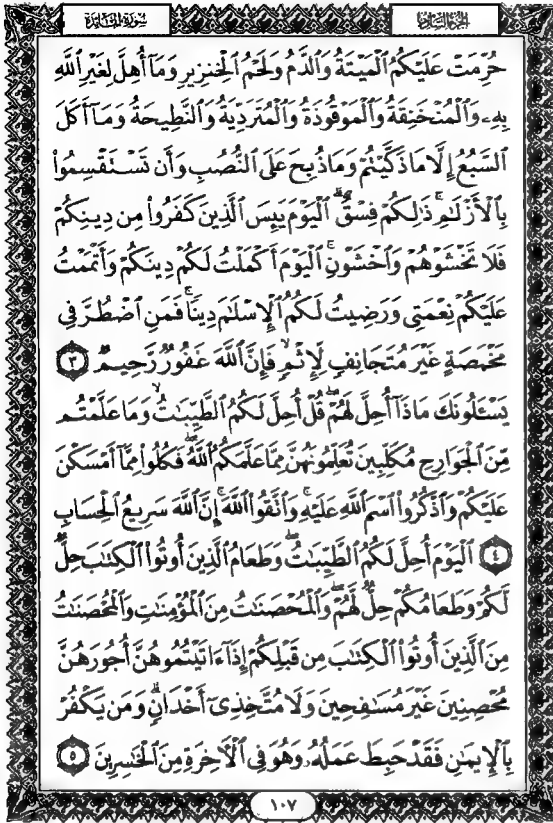 الجزء السادس
سورة المائدة
حُرِّمَتْ عَلَيْكُمُ الْمَيْتَةُ وَالدَّمُ وَلَحْمُ الْخِنزِيرِ وَمَا أُهِلَّ لِغَيْرِ اللَّهِ
بِهِۦ وَالْمُنْخَنِقَةُ وَالْمَوْقُوذَةُ وَالْمُتَرَدِّيَةُ وَالنَّطِيحَةُ وَمَا أَكَلَ
السَّبُعُ إِلَّا مَا ذَكَّيْتُمْ وَمَا ذُبِحَ عَلَى النُّصُبِ وَأَن تَسْتَقْسِمُوا۟
بِالْأَزْلَٰمِ ۚ ذَٰلِكُمْ فِسْقٌ ۗ الْيَوْمَ يَئِسَ الَّذِينَ كَفَرُوا۟ مِن دِينِكُمْ
فَلَا تَخْشَوْهُمْ وَاخْشَوْنِ ۚ الْيَوْمَ أَكْمَلْتُ لَكُمْ دِينَكُمْ وَأَتْمَمْتُ
عَلَيْكُمْ نِعْمَتِى وَرَضِيتُ لَكُمُ الْإِسْلَٰمَ دِينًا ۚ فَمَنِ اضْطُرَّ فِى
مَخْمَصَةٍ غَيْرَ مُتَجَانِفٍ لِّإِثْمٍ ۙ فَإِنَّ اللَّهَ غَفُورٌ رَّحِيمٌ ٣
يَسْـَٔلُونَكَ مَاذَا أُحِلَّ لَهُمْ ۖ قُلْ أُحِلَّ لَكُمُ الطَّيِّبَٰتُ ۙ وَمَا عَلَّمْتُم
مِّنَ الْجَوَارِحِ مُكَلِّبِينَ تُعَلِّمُونَهُنَّ مِمَّا عَلَّمَكُمُ اللَّهُ ۖ فَكُلُوا۟ مِمَّا أَمْسَكْنَ
عَلَيْكُمْ وَاذْكُرُوا۟ اسْمَ اللَّهِ عَلَيْهِ ۖ وَاتَّقُوا۟ اللَّهَ ۚ إِنَّ اللَّهَ سَرِيعُ الْحِسَابِ
٤ الْيَوْمَ أُحِلَّ لَكُمُ الطَّيِّبَٰتُ ۖ وَطَعَامُ الَّذِينَ أُوتُوا۟ الْكِتَٰبَ حِلٌّ
لَّكُمْ وَطَعَامُكُمْ حِلٌّ لَّهُمْ ۖ وَالْمُحْصَنَٰتُ مِنَ الْمُؤْمِنَٰتِ وَالْمُحْصَنَٰتُ
مِنَ الَّذِينَ أُوتُوا۟ الْكِتَٰبَ مِن قَبْلِكُمْ إِذَا ءَاتَيْتُمُوهُنَّ أُجُورَهُنَّ
مُحْصِنِينَ غَيْرَ مُسَٰفِحِينَ وَلَا مُتَّخِذِىٓ أَخْدَانٍ ۗ وَمَن يَكْفُرْ
بِالْإِيمَٰنِ فَقَدْ حَبِطَ عَمَلُهُۥ وَهُوَ فِى الْءَاخِرَةِ مِنَ الْخَٰسِرِينَ ٥
١٠٧